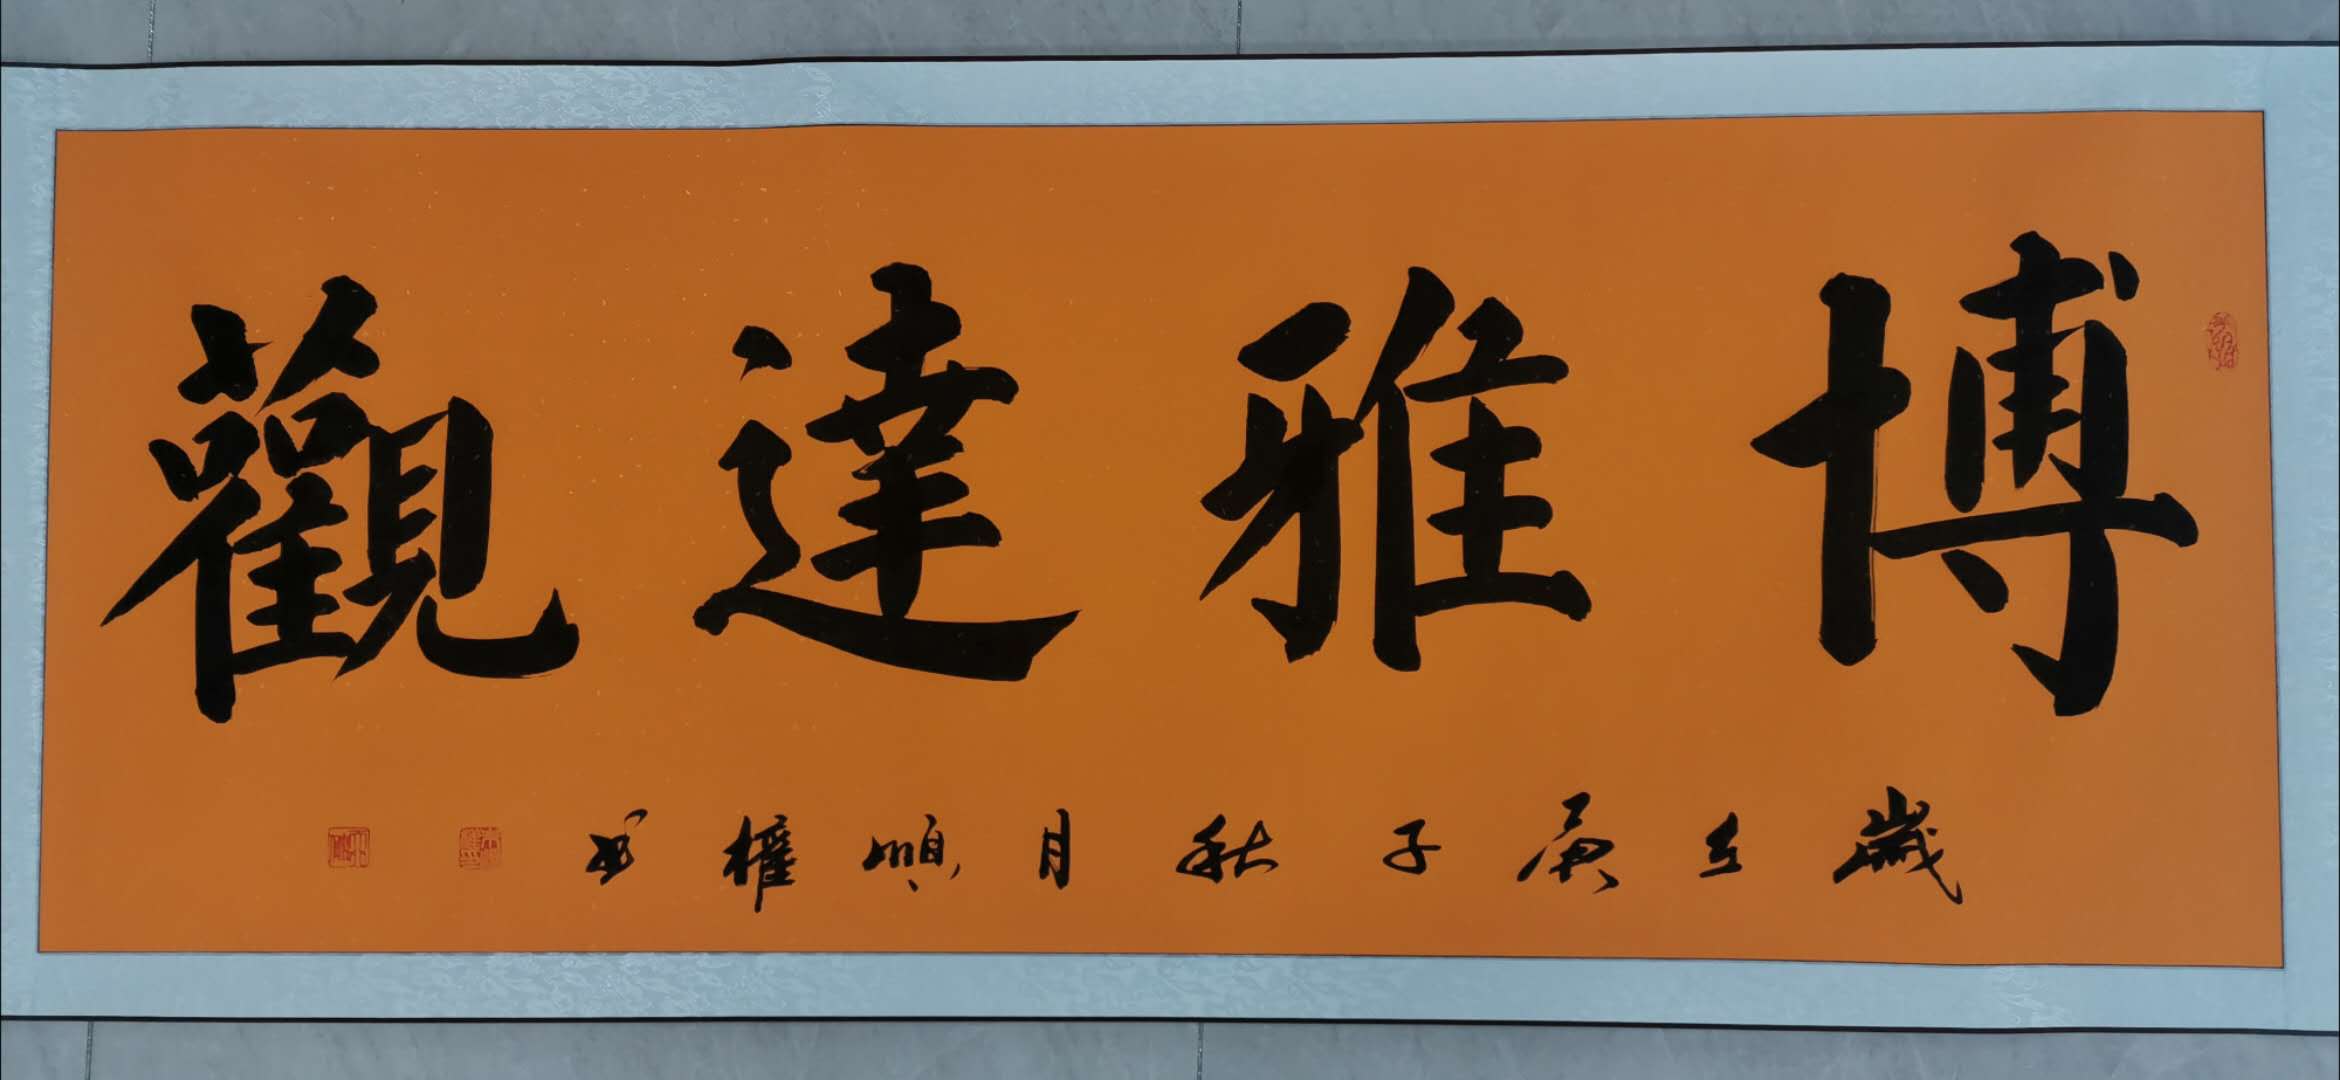 博雅達觀
歲在庚子秋月順權书